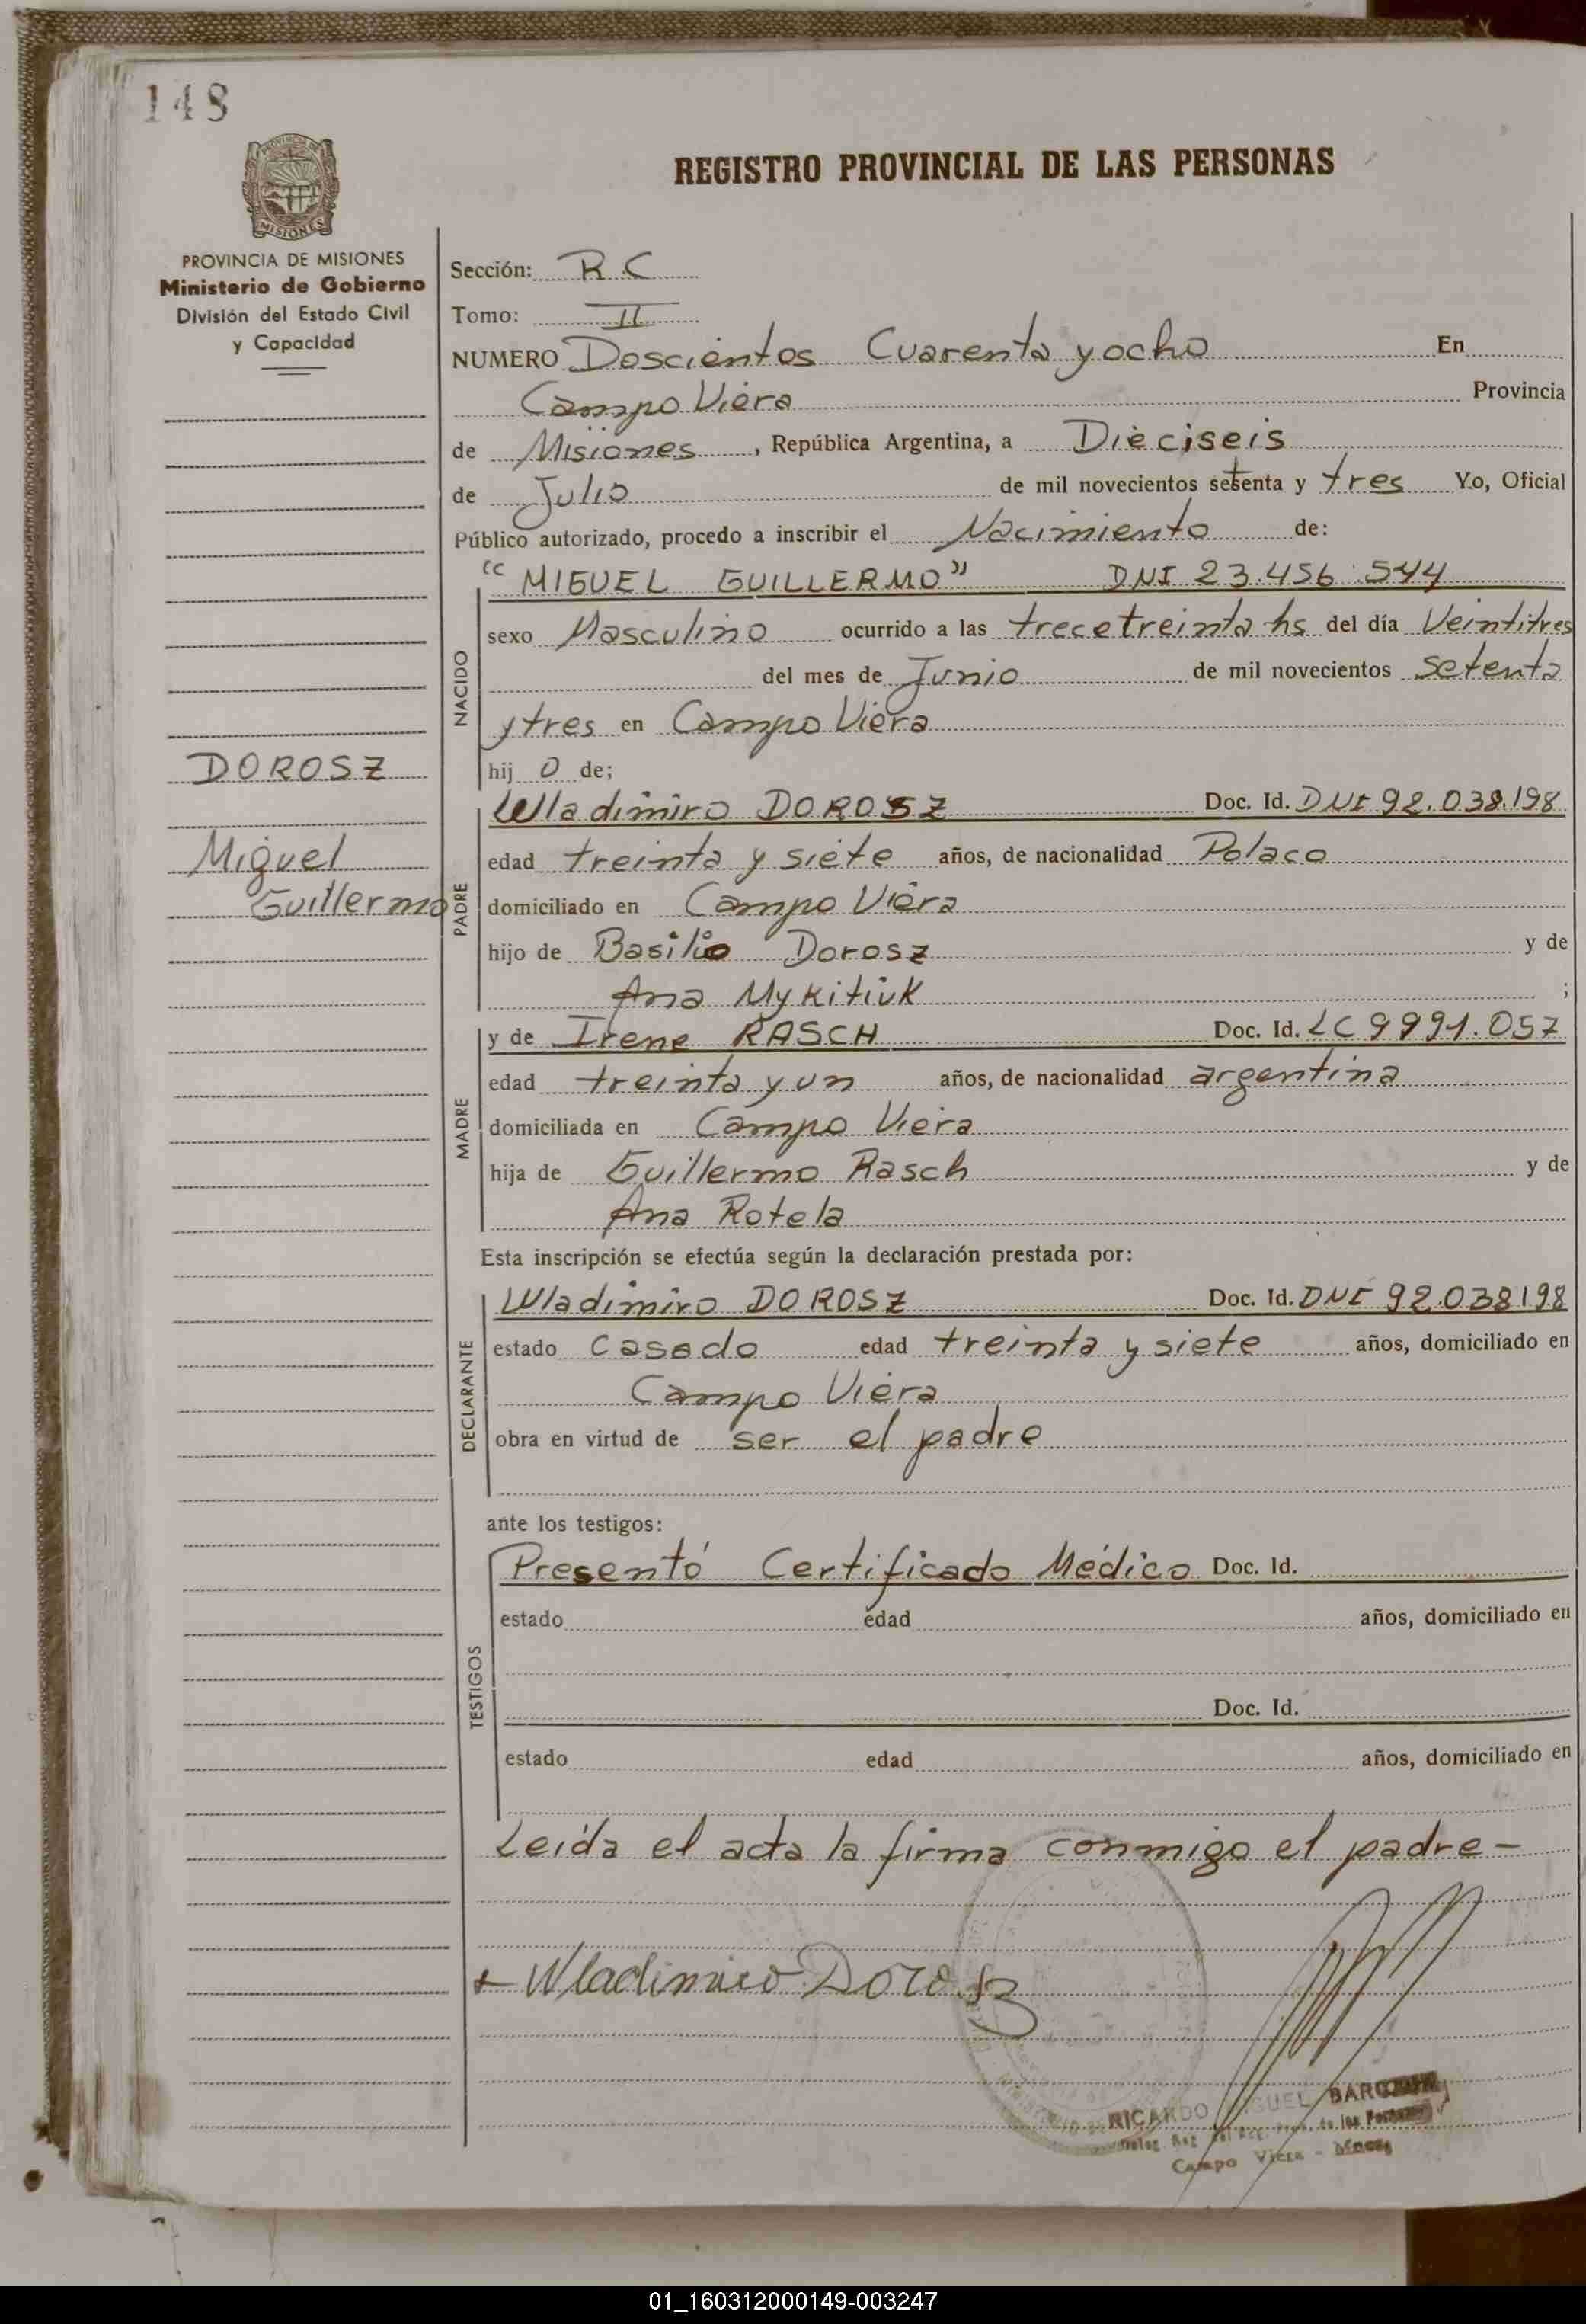 148
PROVINCIA DE MISIONES
MISIONES
PROVINCIA DE MISIONES
Ministerio de Gobierno
División del Estado Civil
y Capacidad
DOROSZ
Miguel
Guillermo
REGISTRO PROVINCIAL DE LAS PERSONAS
Sección: R C
Tomo: II
NUMERO Doscientos Cuarenta y ocho En
Campo Viera Provincia
de Misiones, República Argentina, a Dieciseis
de Julio de mil novecientos setenta y tres Yo, Oficial
Público autorizado, procedo a inscribir el Nacimiento de:
NACIDO
"MIGUEL GUILLERMO" DNI 23.456.544
sexo Masculino ocurrido a las trece treinta hs del día Veintitres
del mes de Junio de mil novecientos setenta
y tres en Campo Viera
hij o de;
PADRE
Wladimiro DOROSZ Doc. Id. DNI 92.038.198
edad treinta y siete años, de nacionalidad Polaco
domiciliado en Campo Viera
hijo de Basilio Dorosz y de
Ana Mykitiuk ;
MADRE
y de Irene RASCH Doc. Id. LC 9991.057
edad treinta y un años, de nacionalidad argentina
domiciliada en Campo Viera
hija de Guillermo Rasch y de
Ana Rotela
Esta inscripción se efectúa según la declaración prestada por:
DECLARANTE
Wladimiro DOROSZ Doc. Id. DNI 92.038198
estado Casado edad treinta y siete años, domiciliado en
Campo Viera
obra en virtud de ser el padre
ante los testigos:
TESTIGOS
Presentó Certificado Médico Doc. Id.
estado edad años, domiciliado en
Doc. Id.
estado edad años, domiciliado en
Leída el acta la firma conmigo el padre-
Wladimiro Dorosz
RICARDO MIGUEL
Campo Viera - Mnes
01_160312000149-003247